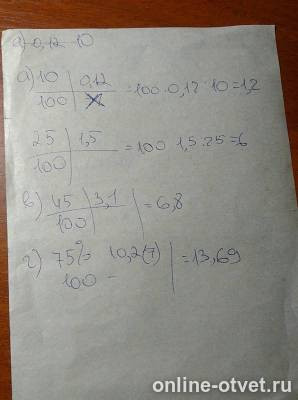 а) 0,12 10
а) 10 | 0,12
100 | = 100·0,12:10=1,2
25 | 1,5
100 | = 100 1,5:25=6
в) 45 | 3,1
100 | = 6,8
г) 75% 10,2(7)
100 - | = 13,69
online-otvet.ru